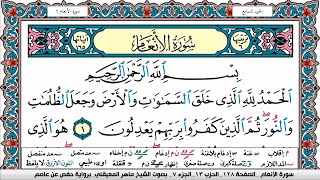 سورة الأنعام ٦
الجزء السابع
سُورَةُ الأَنْعَامِ
بِسْمِ اللَّهِ الرَّحْمَٰنِ الرَّحِيمِ
الْحَمْدُ لِلَّهِ الَّذِي خَلَقَ السَّمَاوَاتِ وَالْأَرْضَ وَجَعَلَ الظُّلُمَاتِ
وَالنُّورَ ثُمَّ الَّذِينَ كَفَرُوا بِرَبِّهِمْ يَعْدِلُونَ ١ هُوَ الَّذِي
سورة الأنعام الصفحة ١٢٨ الحزب ١٣ الجزء ٧ بصوت الشيخ ماهر المعيقلي برواية حفص عن عاصم